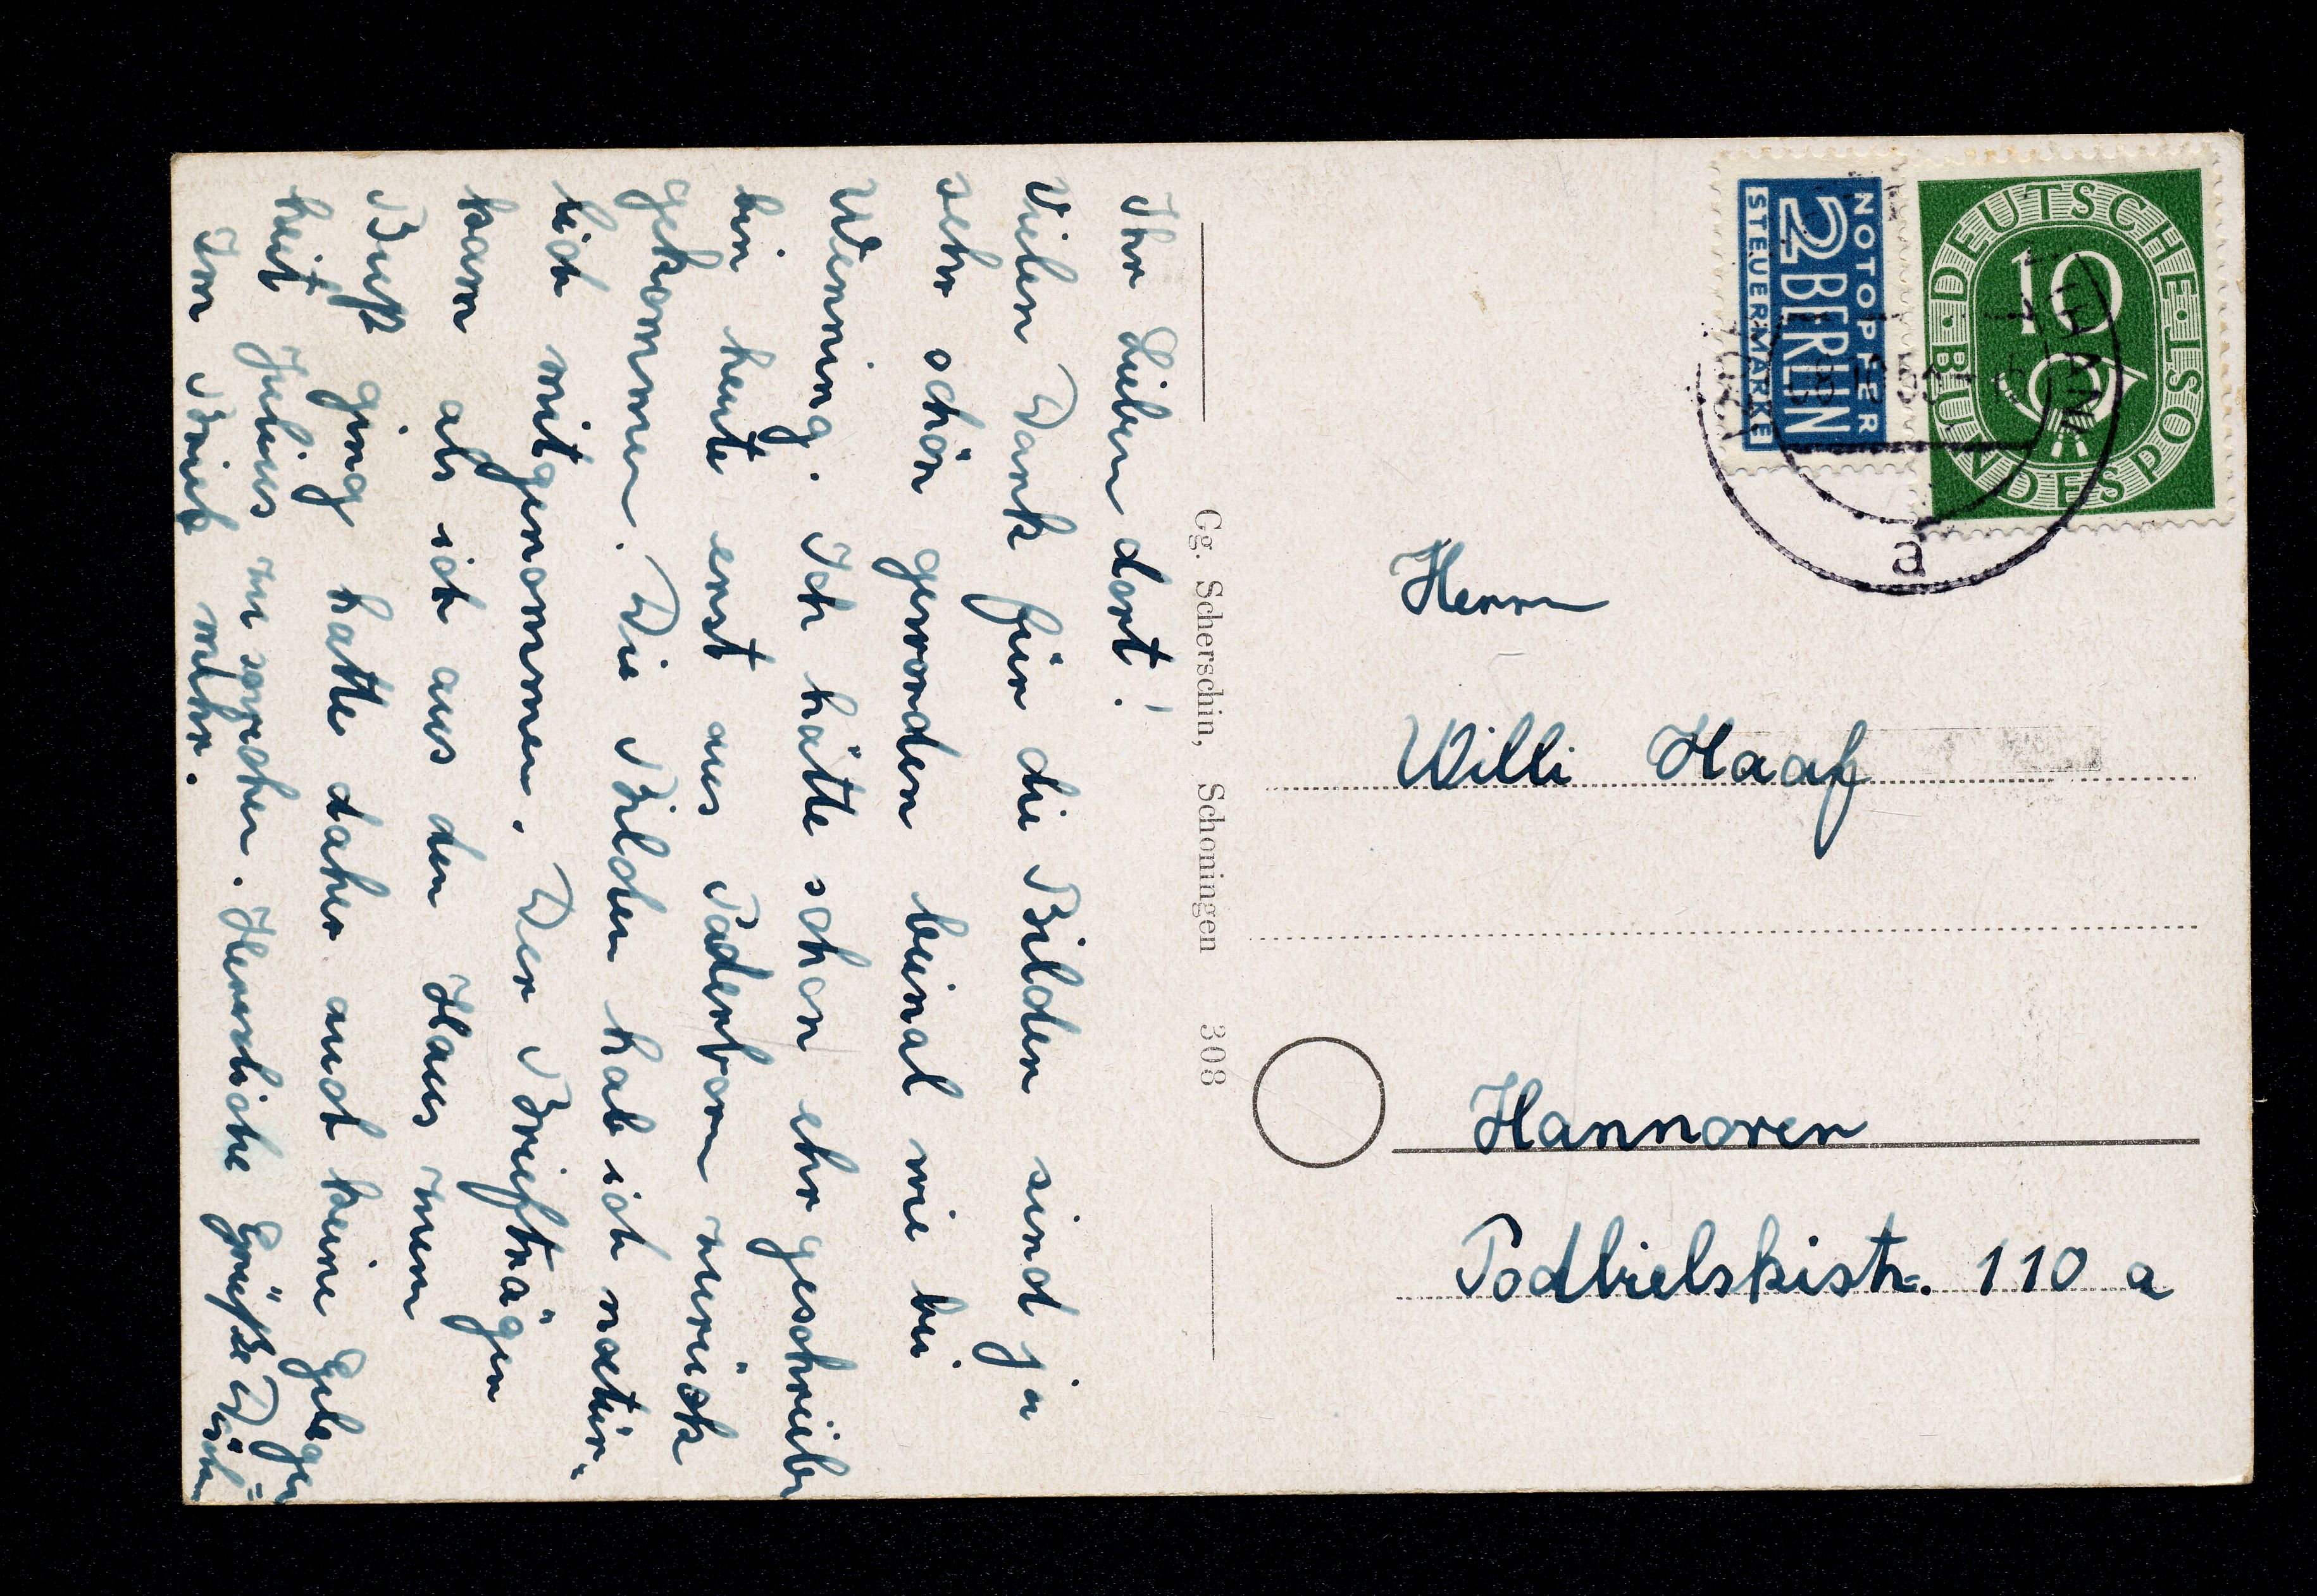 Ihr Lieben dort!
Vielen Dank für die Bilder sind ja
sehr schön geworden beinal wie bei
Wenning. Ich hätte schon ehr geschrieben
bin heute erst aus Paderborn zurück
gekommen. Die Bilder hab ich natür-
lich mitgenommen. Der Briefträger
kam als ich aus den Haus zum
Buß ging hatte daher auch keine Gelegen=
heit Julius zu sprechen. Herzliche Grüße
Im Brief mehr.
Gg. Scherschin, Schöningen 308
NOTOPFER
2 BERLIN
STEUERMARKE
DEUTSCHE BUNDESPOST
10
a
Herrn
Willi Haaf
Hannover
Podbielskistr. 110 a